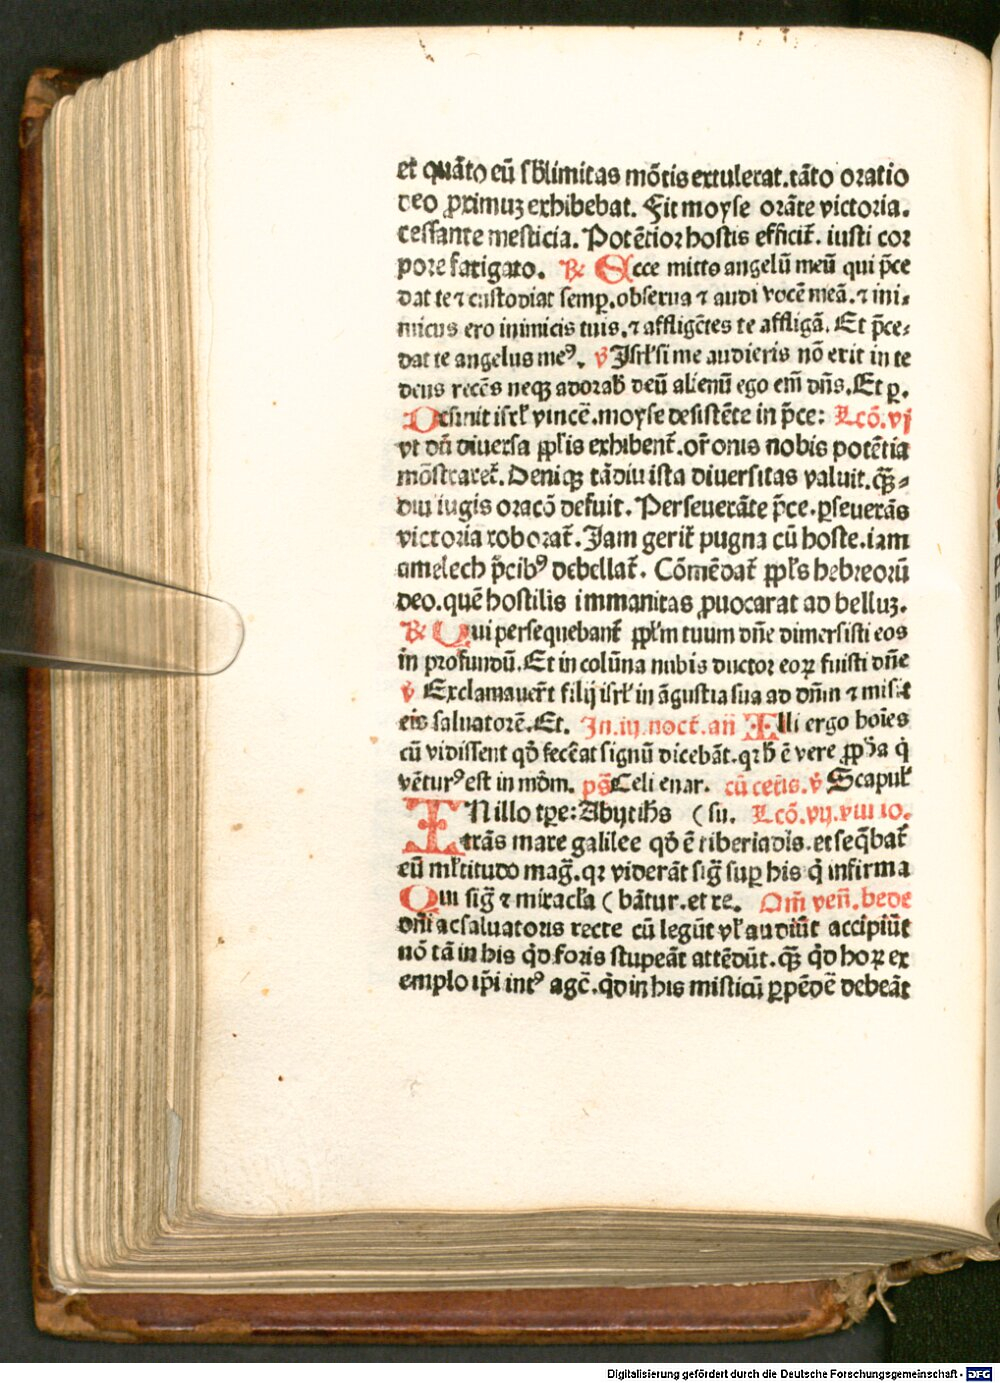 et quāto eū sb̄limitas mōtis extulerat. tāto oratio
deo ꝓximuꝫ exhibebat. Fit moyse orāte victoria.
cessante mesticia. Potētior hostis efficit̄. iusti cor
pore fatigato. ℟ Ecce mitto angelū meū qui p̄ce
dat te ⁊ custodiat semꝑ. obserua ⁊ audi vocē meā. ⁊ ini⸗
micus ero inimicis tuis. ⁊ affligētes te affligā. Et p̄ce⸗
dat te angelus meꝰ. ℣ Isrl̄ si me audieris nō erit in te
deus recēs neqꝫ adorab̄ deū alienū ego em̄ dn̄s. Et p̱.
Desinit isrl̄ vincē̄. moyse desistēte in p̄ce: Lcō. vj
vt dn̄ diuersa ppl̄is exhibent̄. or̄onis nobis potētia
mōstraret̄. Deniqꝫ tādiu ista diuersitas valuit. qꝫ̄⸗
diu iugis oracō defuit. Perseuerāte p̄ce. ꝑseuerās
victoria roborat̄. Jam gerit̄ pugna cū hoste. iam
amelech p̄cibꝰ debellat̄. Cōmēdat̄ ppl̄s hebreorū
deo. quē hostilis immanitas ꝓuocarat ad belluꝫ.
℟ Qui persequebant̄ ppl̄m tuum dn̄e dimersisti eos
in profundū. Et in colūna nubis ductor eoꝝ fuisti dn̄e
℣ Exclamauer̄t filij isrl̄ in āgustia sua ad dn̄m ⁊ misit
eis saluatorē. Et. In. iij. noct̄. an̄ Illi ergo hoīes
cū vidissent qd̄ fecēat signū dicebāt. qꝛ h̄ ē vere ꝓph̄a q̇
vētur᷒ est in mdm̄. ps̄ Celi enar. cū ceīis. ℣ Scapul̄
IN illo tꝑe: Abijt ih̄s (su. Lcō. vij. viii io.
trās mare galilee qd̄ ē tiberiadis. et seq̄bat̄
eū ml̄titudo maḡ. qꝛ viderāt siḡ suꝑ his q̇ infirma
Qui siḡ ⁊ miracl̄a (bātur. et re. Om̄ ven̄. bede
dn̄i ac saluatoris recte cū legūt vl̄ audiūt accipiūt
nō tā in his qd̄ foris stupeāt attēdūt. qꝫ̄ qd̄ hoꝝ ex
emplo ip̄i intꝰ agē̄. qd̄ in his misticū ꝑpēdē̄ debeāt
Digitalisierung gefördert durch die Deutsche Forschungsgemeinschaft - DFG